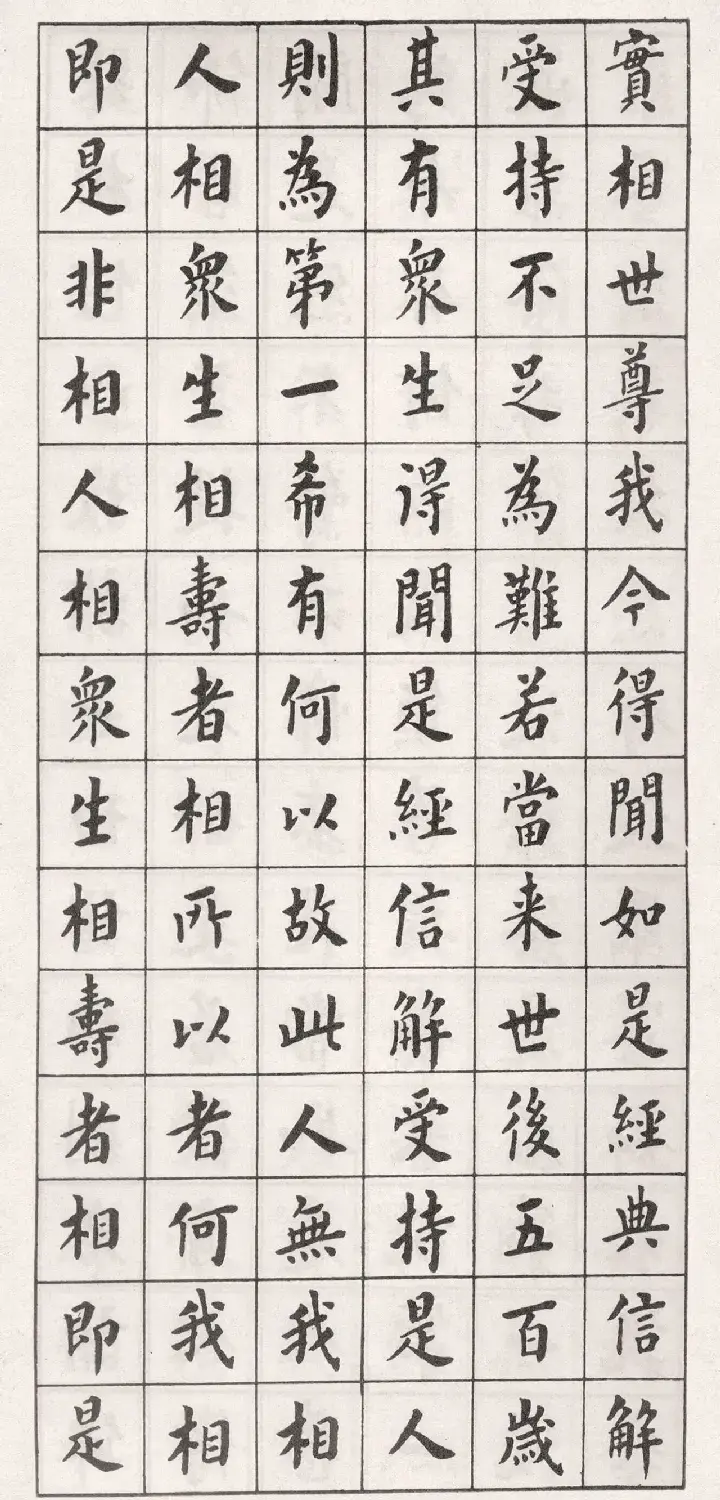 實相世尊我今得聞如是經典信解
受持不足為難若當来世後五百歲
其有眾生得聞是經信解受持是人
則為第一希有何以故此人無我相
人相眾生相壽者相所以者何我相
即是非相人相眾生相壽者相即是